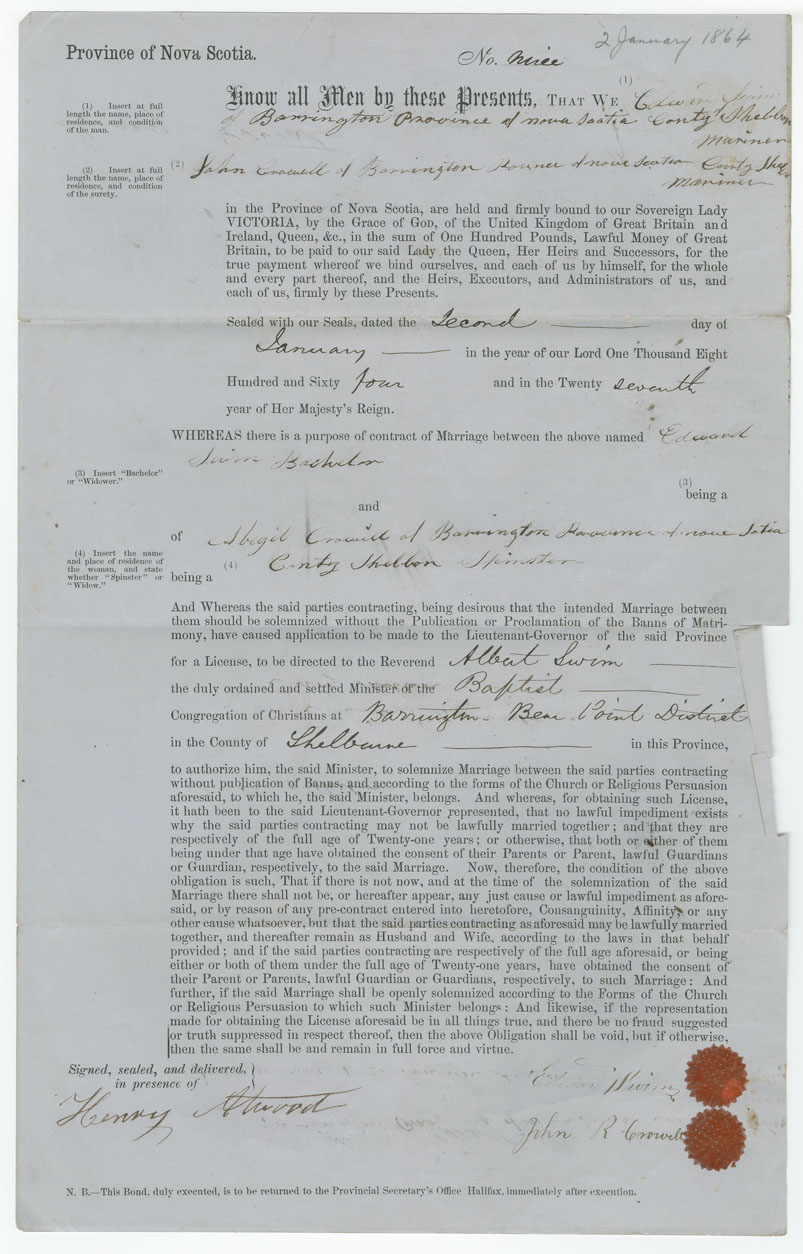 2 January 1864
Province of Nova Scotia.
No.
(1)
Know all Men by these Presents, THAT WE
(1) Insert at full
length the name, place of
residence, and condition
of the man.
of Barrington Province of nova Scotia Conty Shelbon
Mariner
(2) Insert at full
length the name, place of
residence, and condition
of the surety.
(2) John Crowell of Barrington of nova Scotia County
Mariner
in the Province of Nova Scotia, are held and firmly bound to our Sovereign Lady
VICTORIA, by the Grace of GOD, of the United Kingdom of Great Britain and
Ireland, Queen, &c., in the sum of One Hundred Pounds, Lawful Money of Great
Britain, to be paid to our said Lady the Queen, Her Heirs and Successors, for the
true payment whereof we bind ourselves, and each of us by himself, for the whole
and every part thereof, and the Heirs, Executors, and Administrators of us, and
each of us, firmly by these Presents.
Sealed with our Seals, dated the Second day of
January in the year of our Lord One Thousand Eight
Hundred and Sixty four and in the Twenty seventh
year of Her Majesty's Reign.
WHEREAS there is a purpose of contract of Marriage between the above named Edward
Swim Bachelor
(3) Insert "Bachelor"
or "Widower."
(3)
being a
and
of Abegil Crowell of Barrington of nova
(4) Insert the name
and place of residence of
the woman, and state
whether "Spinster" or
"Widow."
(4) Conty Shelbon Spinster
being a
And Whereas the said parties contracting, being desirous that the intended Marriage between
them should be solemnized without the Publication or Proclamation of the Banns of Matri-
mony, have caused application to be made to the Lieutenant-Governor of the said Province
for a License, to be directed to the Reverend Albert Swim
the duly ordained and settled Minister of the Baptist
Congregation of Christians at Barrington Bear Point District
in the County of Shelburne in this Province,
to authorize him, the said Minister, to solemnize Marriage between the said parties contracting
without publication of Banns, and according to the forms of the Church or Religious Persuasion
aforesaid, to which he, the said Minister, belongs. And whereas, for obtaining such License,
it hath been to the said Lieutenant-Governor represented, that no lawful impediment exists
why the said parties contracting may not be lawfully married together; and that they are
respectively of the full age of Twenty-one years; or otherwise, that both or either of them
being under that age have obtained the consent of their Parents or Parent, lawful Guardians
or Guardian, respectively, to the said Marriage. Now, therefore, the condition of the above
obligation is such, That if there is not now, and at the time of the solemnization of the said
Marriage there shall not be, or hereafter appear, any just cause or lawful impediment as afore-
said, or by reason of any pre-contract entered into heretofore, Consanguinity, Affinity, or any
other cause whatsoever, but that the said parties contracting as aforesaid may be lawfully married
together, and thereafter remain as Husband and Wife, according to the laws in that behalf
provided; and if the said parties contracting are respectively of the full age aforesaid, or being
either or both of them under the full age of Twenty-one years, have obtained the consent of
their Parent or Parents, lawful Guardian or Guardians, respectively, to such Marriage: And
further, if the said Marriage shall be openly solemnized according to the Forms of the Church
or Religious Persuasion to which such Minister belongs: And likewise, if the representation
made for obtaining the License aforesaid be in all things true, and there be no fraud suggested
or truth suppressed in respect thereof, then the above Obligation shall be void, but if otherwise,
then the same shall be and remain in full force and virtue.
Signed, sealed, and delivered,
in presence of
Henry Atwood
Swim
John R Crowell
N. B.—This Bond, duly executed, is to be returned to the Provincial Secretary's Office Halifax, immediately after execution.